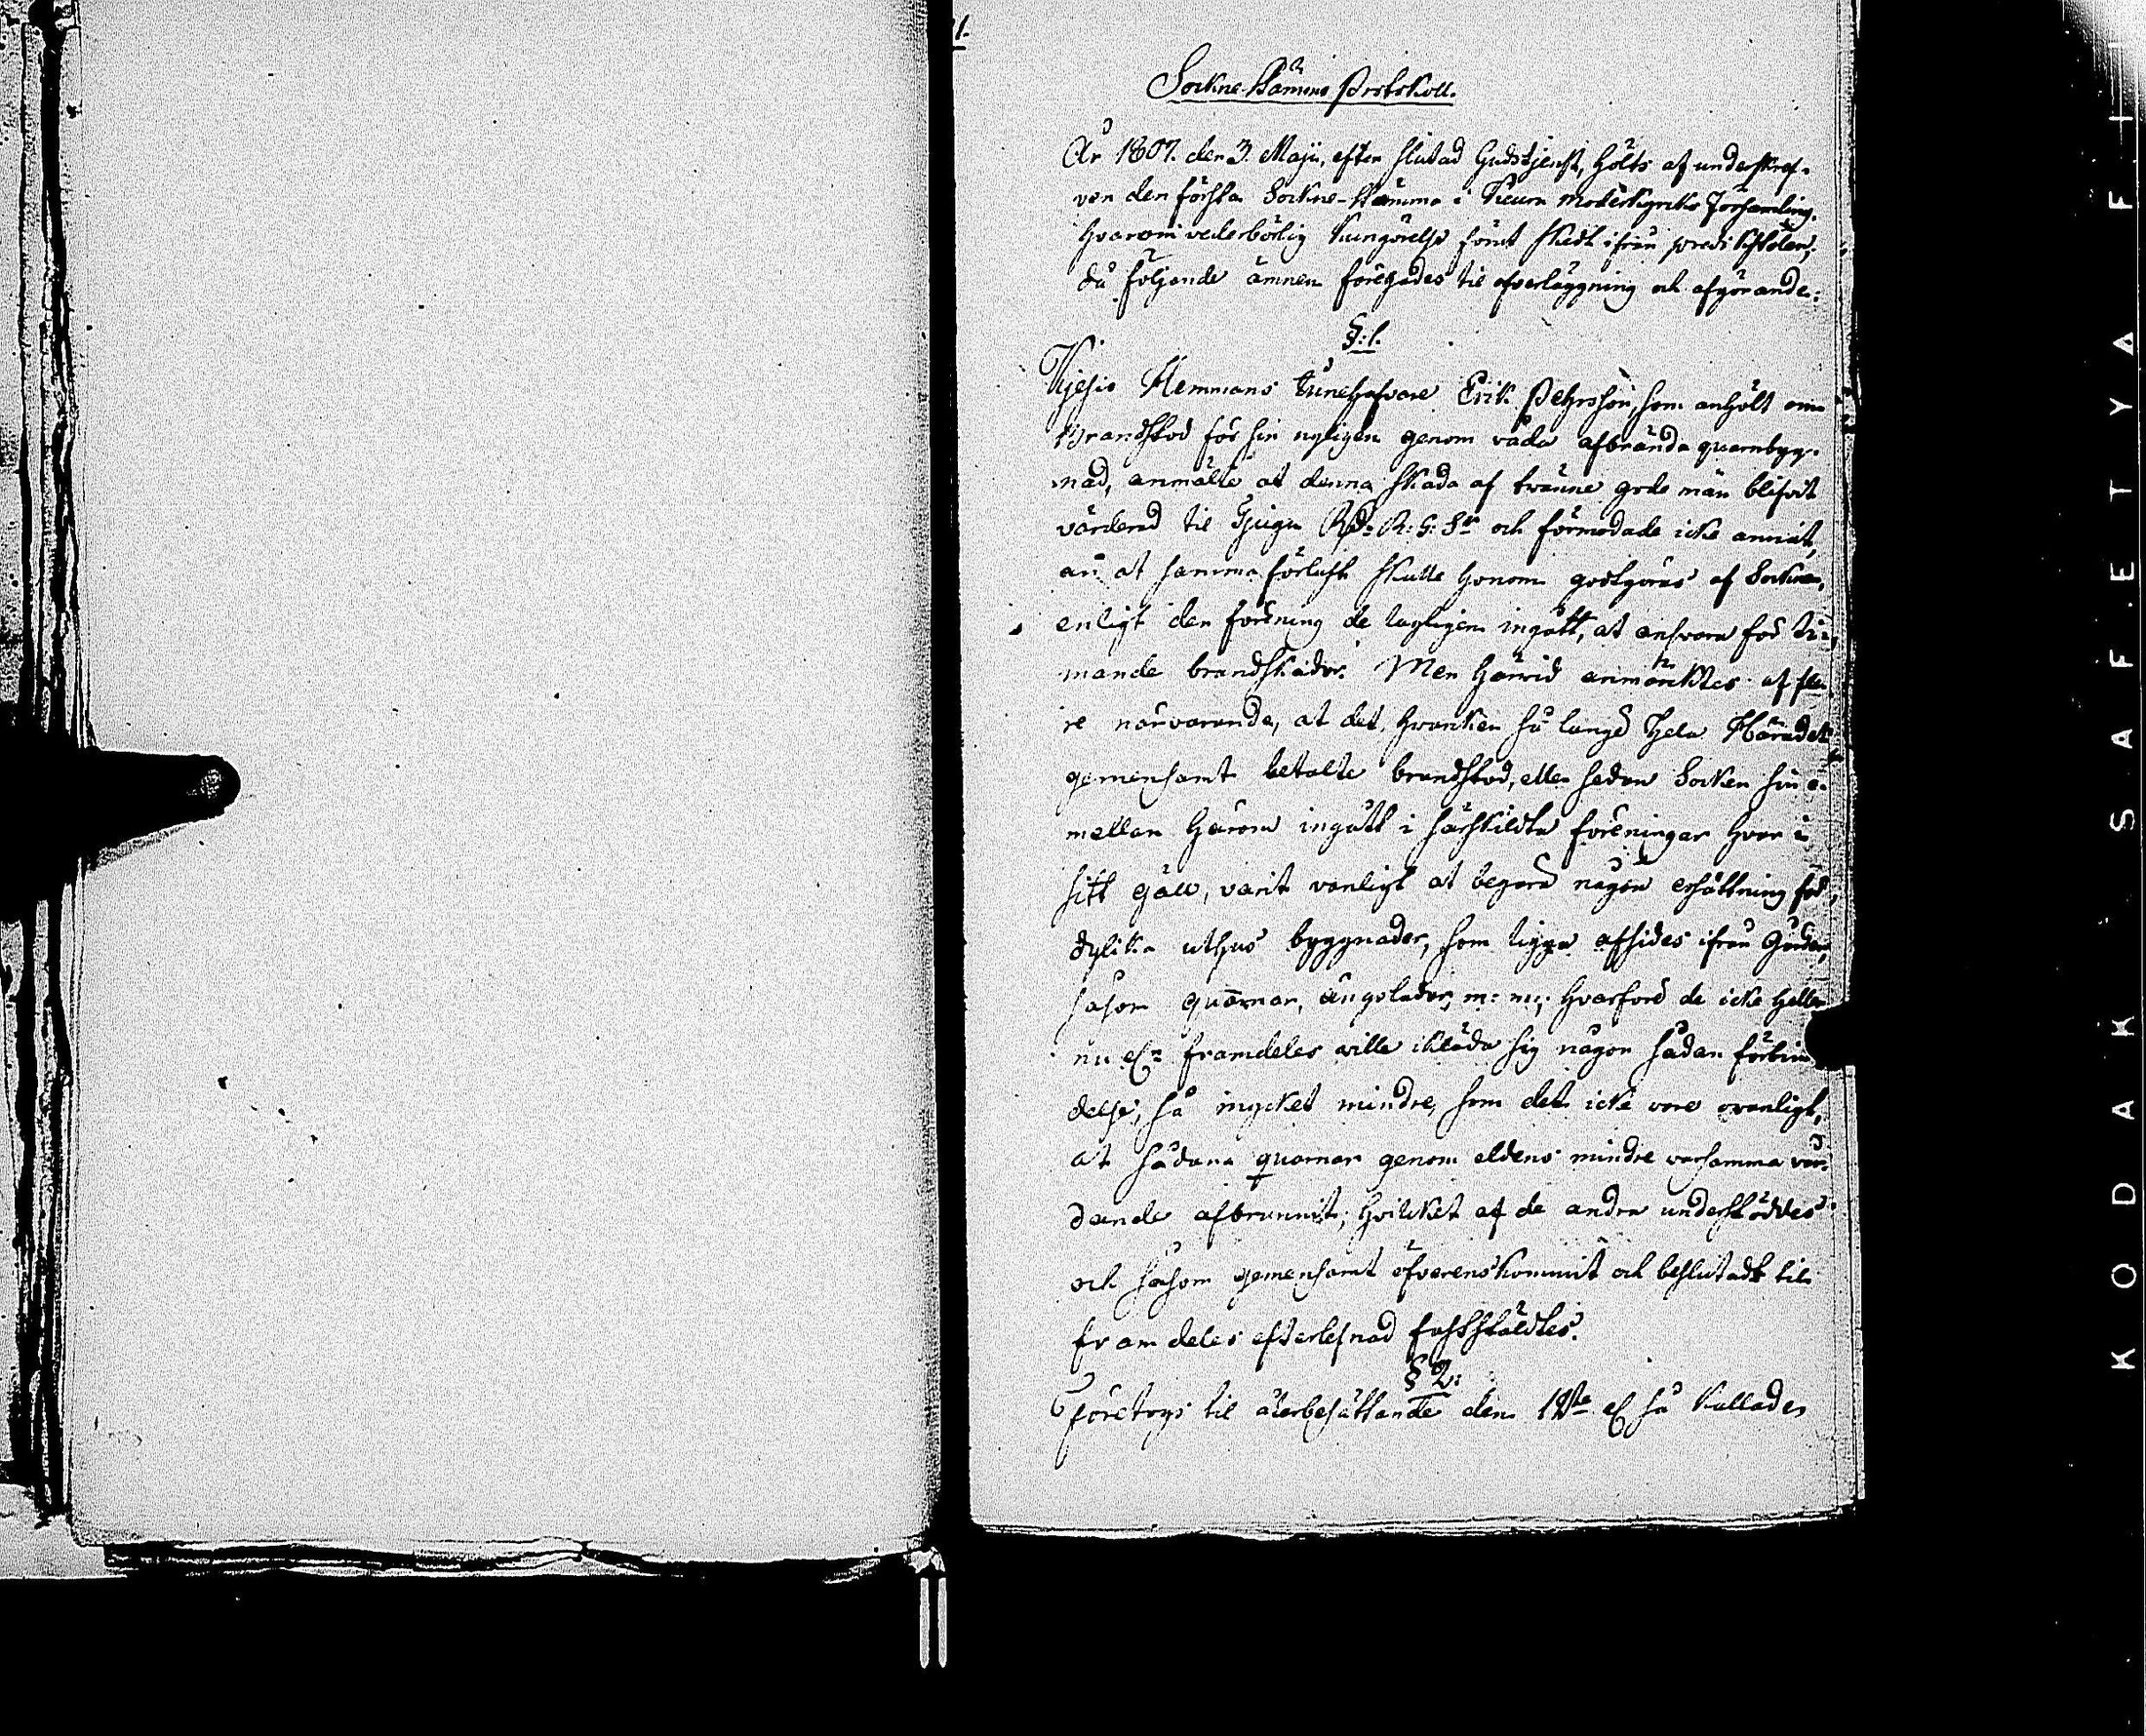 1.
Sockne-Stämmo Protokoll.
År 1807. den 3. Maji, efter slutad Gudstjenst, hölts af underskref-
ven den första Sockne-Stämma i Kieuru moderkyrko Församling,
hvarom vederbörlig kungörelse förut skedt ifrån predikstolen;
då följande ämnen företogos til öfverläggning och afgörande:
§:1.
Hemmans Innehafvare Erik Pehrsson, som anhölt om
Brandstod för sin nyligen genom våda afbrända quarnbyg-
nad, anmälte at denna skada af tvänne gode män blifvit
värderad til Tjugu Rd: R: G: Sr och förmodade icke annat,
än at samma förlust skulle honom godtgöras af Socknen,
enligt den förening de lagligen ingått, at ansvara för ti-
mande brandskador. Men härvid anmärktes af fle-
re närvarande, at det hvarken så länge hela Häradet
gemensamt betalte brandstod, eller sedan Socken sin e-
mellan härom ingått i särskildta föreningar hvar i
sitt Gäll, varit vanligt at begära någon ersättning för
dylika uthus byggnader, som ligga afsides ifrån Gården,
såsom quarnar, ängslador, m: m; hvarföre de icke heller
nu el: framdeles ville ikläda sig någon sådan förbin-
delse; så mycket mindre, som det icke vore ovanligt,
at sådana quarnar genom eldens mindre varsamma vår-
dande afbrunnit; hvilcket af de andra understöddes
och såsom gemensamt öfverenskommit och beslutadt til
framdeles efterlefnad fastställdtes.
§ 2:
Företogs til återbesättande den 12te el så kallade